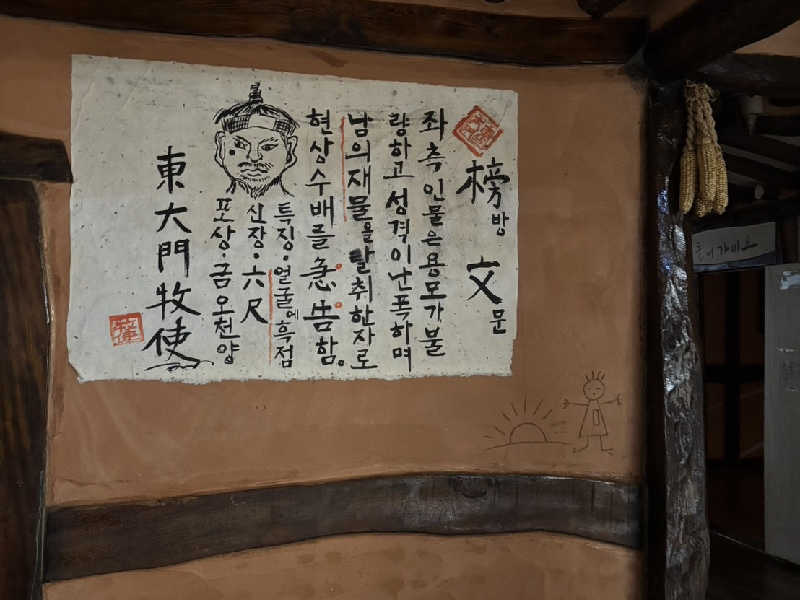 榜방 文문
좌측 인물은 용모가 불
량하고 성격이 난폭하며
남의 재물을 탈취한 자로
현상수배를 急告함.
특징·얼굴에 흑점
신장·六尺
포상·금 오천양
東大門牧使